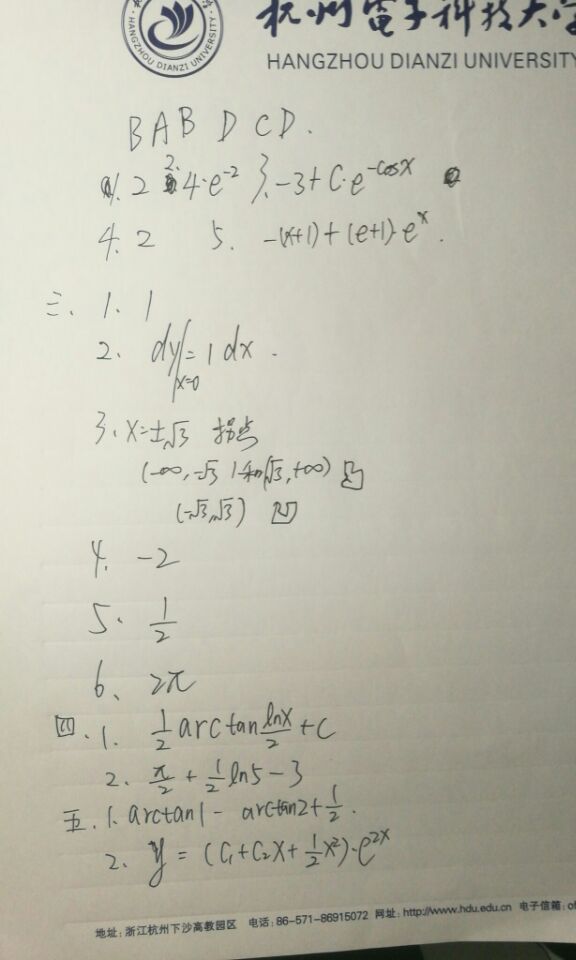 杭州電子科技大学
HANGZHOU DIANZI UNIVERSITY
B A B D C D .
1. 2 2. 4·e^-2 3. -3+C·e^-cosx
4. 2 5. -(x+1)+(e+1)·e^x .
三、1. 1
2. dy|x=0 = 1 dx .
3. x=±√3 拐点
(-∞,-√3)和(√3,+∞) 凸
(-√3,√3) 凹
4. -2
5. 1/2
6、2π
四、1. 1/2 arctan lnx/2 + C
2. π/2 + 1/2 ln5 - 3
五、1. arctan1 - arctan2 + 1/2 .
2. y = (C₁+C₂x+1/2x²)·e^2x
地址：浙江杭州下沙高教园区 电话：86-571-86915072 网址：http://www.hdu.edu.cn 电子信箱：of